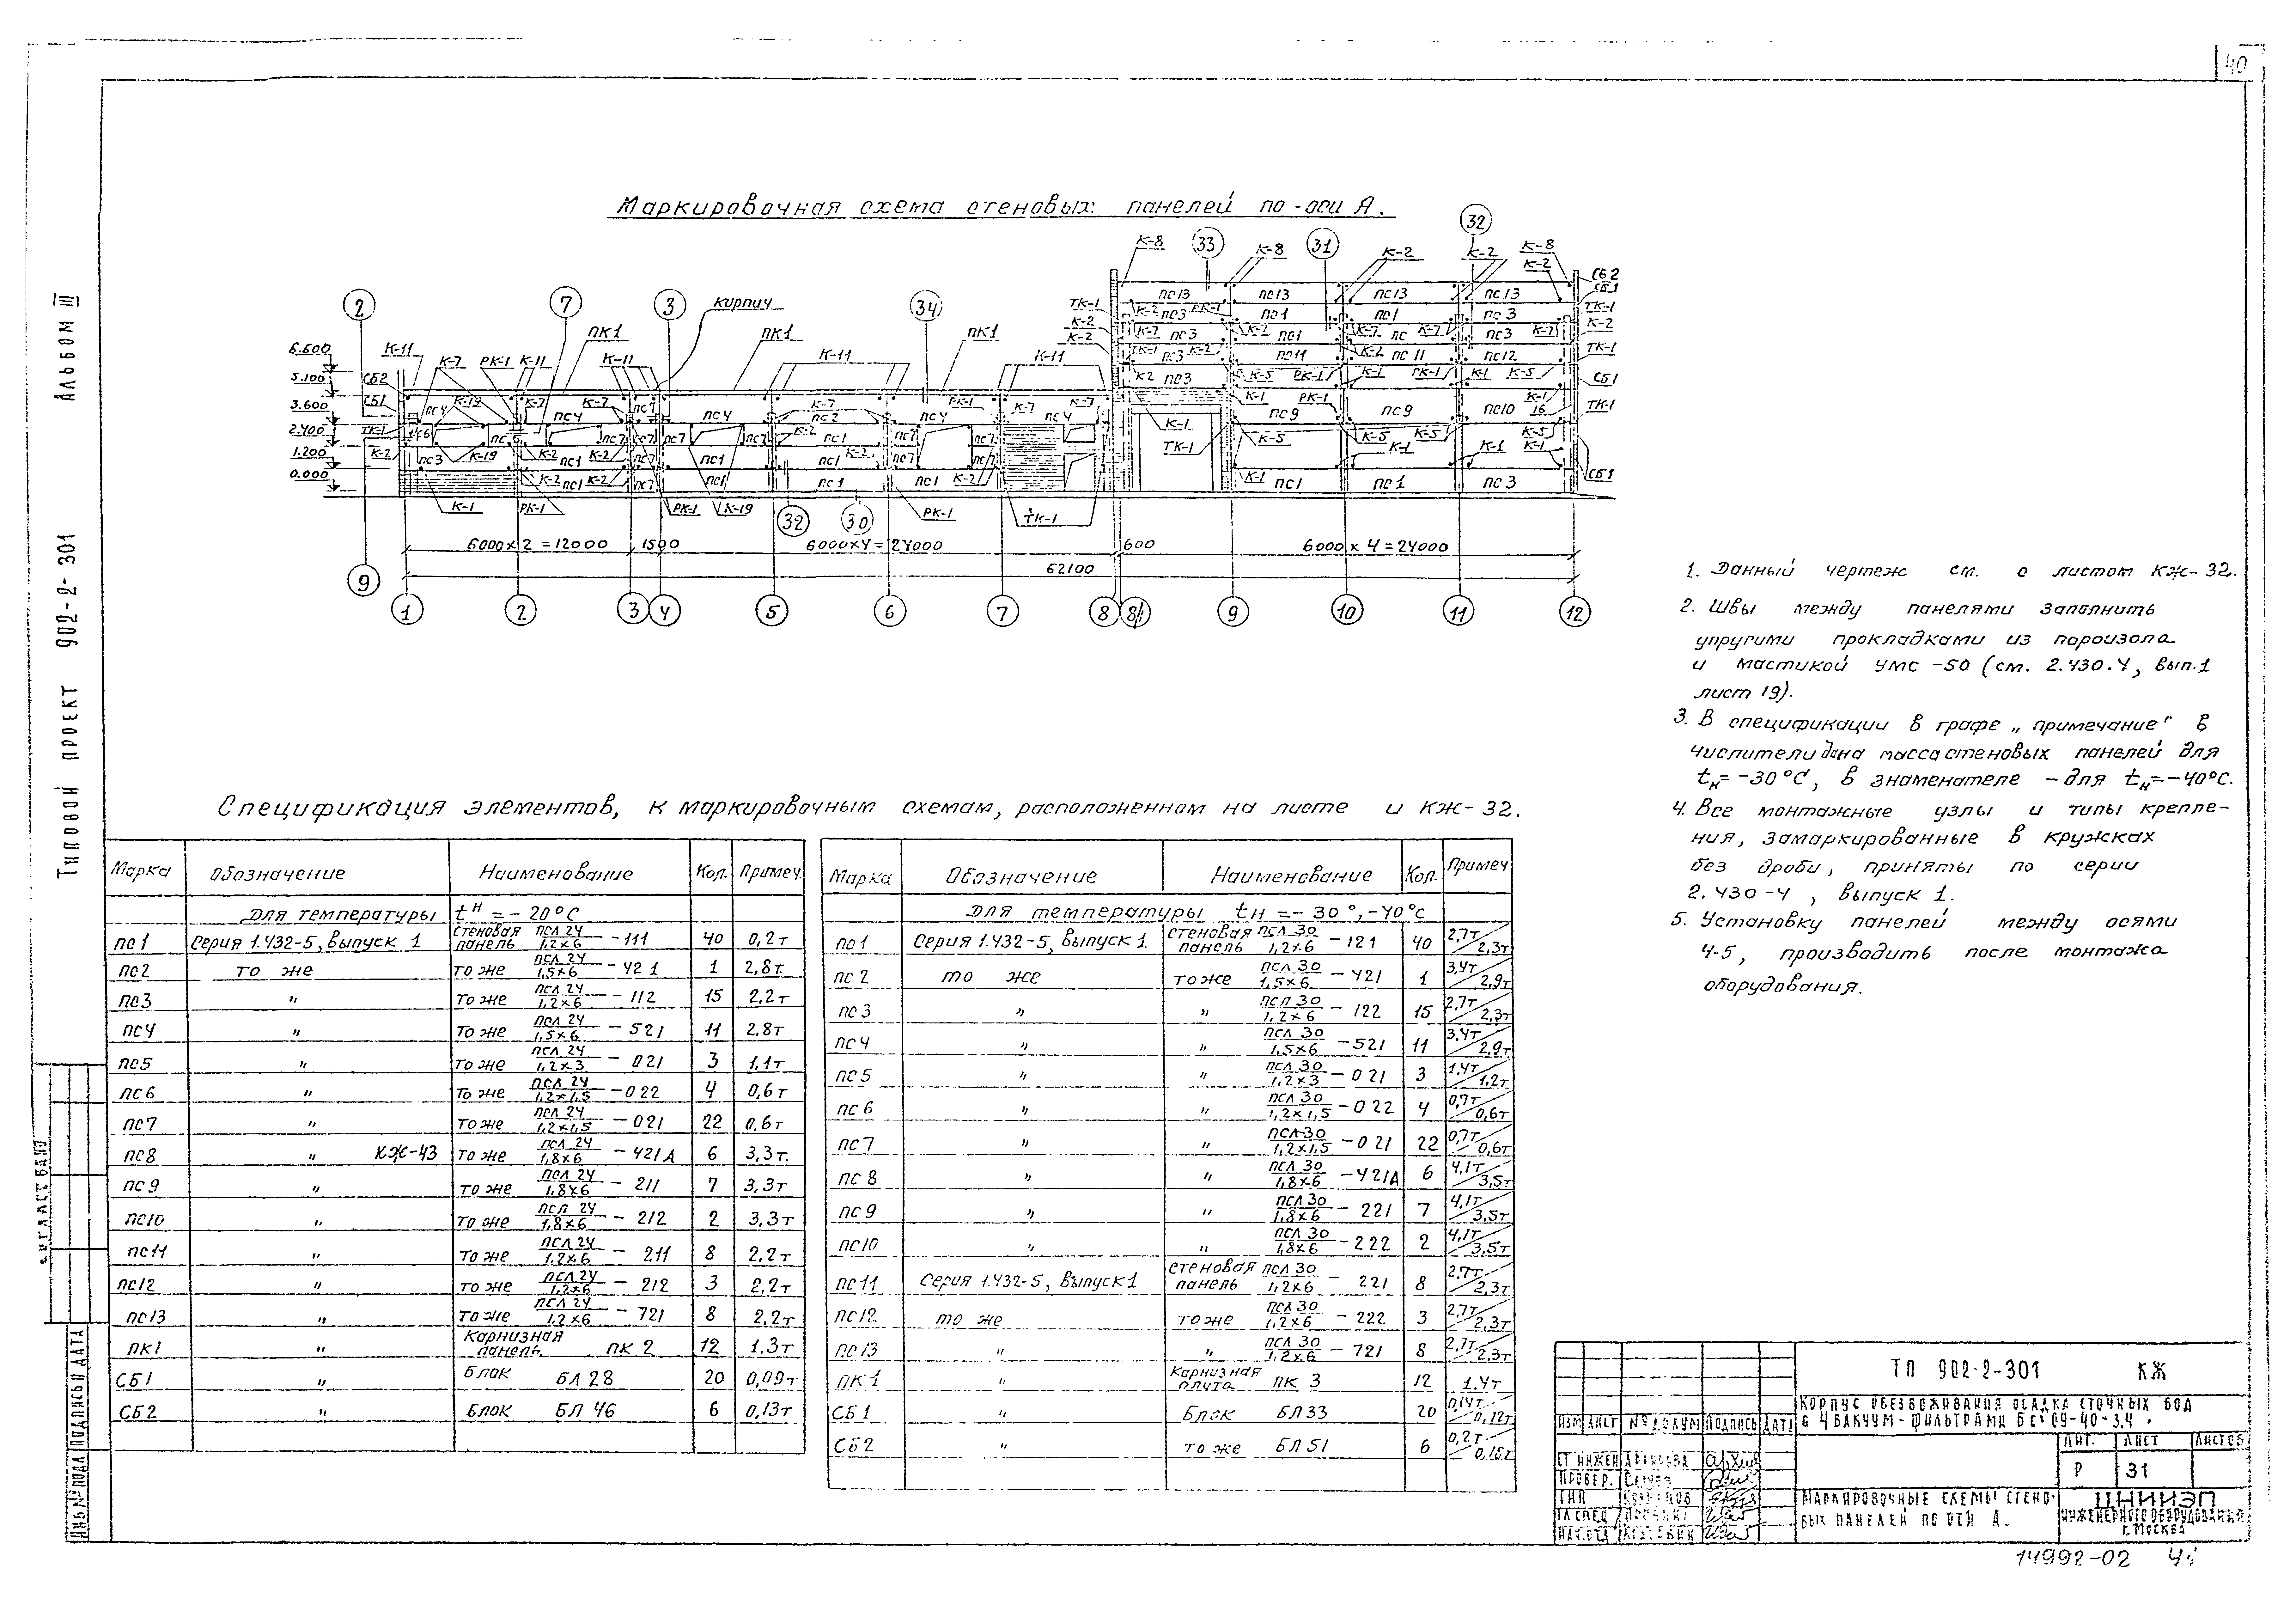 40
Альбом III
Типовой проект 902-2-301
Маркировочная схема стеновых панелей по оси А.
К-8 33 К-8 31 К-2 32 К-2 К-8 К-2 СБ2 СБ1
2 7 3 кирпич 34
ПК1 ПК1 ПК1
ТК-1 ПС13 ПС13 ПС13 ПС13 ТК-1
К-2 ПС3 ПС1 ПС1 ПС3 К-2
6.600 К-11 К-7 РК-1 К-11 К-11 К-11 К-11
К-2 К-7 ПС3 К-2 ПС1 К-7 ПС К-7 ПС3 К-2
ПС3 ПС11 К-2 ПС11 ПС12 ТК-1
5.100 СБ2
К2 ПС3 К-5 РК-1 К-1 РК-1 К-1 К-5 СБ1
3.600 СБ1 ПС4 К-19 К-7 ПС4 К-7 ПС7 ПС4 К-7 ПС2 ПС4 РК-1 К-7 ПС4 К-7
К-1 К-1 ПС9 РК-1 ПС9 ПС10 К-1 16 ТК-1
2.400 ТК-1 ПС7 ПС7 ПС7 К-2 ПС1 ПС7 ПС7
ТК-1 К-5 К-5 К-1 К-5 К-1 К-5 К-1
1.200 К-2 ПС3 К-19 К-2 ПС1 К-2 ПС7 ПС1 ПС1 К-2 ПС7 ПС7
0.000 К-2 ПС1 К-2 ПС7 ПС1 ПС1 ПС1 К-2 К-1 ПС1 ПС1 ПС3 СБ1
К-1 РК-1 РК-1 К-19 32 30 РК-1 ТК-1
6000×2=12000 1500 6000×4=24000 600 6000×4=24000
62100
9
1 2 3 4 5 6 7 8 8/1 9 10 11 12
1. Данный чертеж см. с листом КЖ-32.
2. Швы между панелями заполнить
упругими прокладками из пороизола
и мастикой УМС-50 (см. 2.430.4, вып.1
лист 19).
3. В спецификации в графе „примечание" в
числители дана масса стеновых панелей для
tн=-30°С, в знаменателе - для tн=-40°С.
4. Все монтажные узлы и типы крепле-
ния, замаркированные в кружсках
без дроби, приняты по серии
2.430-4, выпуск 1.
5. Установку панелей между осями
4-5, производить после монтажа
оборудования.
Спецификация элементов, к маркировочным схемам, расположенном на листе и КЖ-32.
Марка Обозначение Наименование Кол. Примеч.
Для температуры tн=-20°С
ПС1 Серия 1.432-5, выпуск 1 стеновая панель ПСЛ 24/1,2×6 -111 40 0,2т
ПС2 то же то же ПСЛ 24/1,5×6 -421 1 2,8т.
ПС3 " то же ПСЛ 24/1,2×6 -112 15 2,2т
ПС4 " то же ПСЛ 24/1,5×6 -521 11 2.8т
ПС5 " то же ПСЛ 24/1,2×3 -021 3 1,1т
ПС6 " то же ПСЛ 24/1,2×1,5 -022 4 0,6т
ПС7 " то же ПСЛ 24/1,2×1,5 -021 22 0,6т
ПС8 " КЖ-43 то же ПСЛ 24/1,8×6 -421А 6 3,3т.
ПС9 " то же ПСЛ 24/1,8×6 -211 7 3,3т
ПС10 " то же ПСЛ 24/1,8×6 -212 2 3,3т
ПС11 " то же ПСЛ 24/1,2×6 -211 8 2,2т
ПС12 " то же ПСЛ 24/1,2×6 -212 3 2,2т
ПС13 " то же ПСЛ 24/1,2×6 -721 8 2,2т
ПК1 " Карнизная панель ПК 2 12 1.3т
СБ1 " Блок БЛ 28 20 0,09т
СБ2 " Блок БЛ 46 6 0,13т
Марка Обозначение Наименование Кол. Примеч
Для температуры tн=-30°,-40°С
ПС1 Серия 1.432-5, выпуск 1 стеновая панель ПСЛ 30/1,2×6 -121 40 2,7т/2,3т
ПС2 то же то же ПСЛ 30/1,5×6 -421 1 3,4т/2,9т
ПС3 " " ПСЛ 30/1,2×6 -122 15 2,7т/2,3т
ПС4 " " ПСЛ 30/1,5×6 -521 11 3,4т/2,9т
ПС5 " " ПСЛ 30/1,2×3 -021 3 1,4т/1,2т
ПС6 " " ПСЛ 30/1,2×1,5 -022 4 0,7т/0,6т
ПС7 " " ПСЛ 30/1,2×1,5 -021 22 0,7т/0,6т
ПС8 " " ПСЛ 30/1,8×6 -421А 6 4,1т/3,5т
ПС9 " " ПСЛ 30/1,8×6 -221 7 4,1т/3,5т
ПС10 " " ПСЛ 30/1,8×6 -222 2 4,1т/3,5т
ПС11 Серия 1.432-5, выпуск 1 стеновая панель ПСЛ 30/1,2×6 -221 8 2,7т/2,3т
ПС12 то же то же ПСЛ 30/1,2×6 -222 3 2,7т/2,3т
ПС13 " " ПСЛ 30/1,2×6 -721 8 2,7т/2,3т
ПК1 " Карнизная плита ПК 3 12 1.4т
СБ1 " Блок БЛ33 20 0,14т/0,12т
СБ2 " то же БЛ51 6 0,2т/0,16т
ТП 902-2-301 КЖ
Корпус обезвоживания осадка сточных вод
с 4 вакуум-фильтрами
Изм Лист № докум Подпись Дата
Лит. Лист Листов
Р 31
Ст инжен
Провер.
ГИП
Гл спец
Нач. отд
Маркировочные схемы стено-
вых панелей по оси А.
ЦНИИЭП
инженерного оборудования
г. Москва
Инв № подл Подпись и дата
14992-02